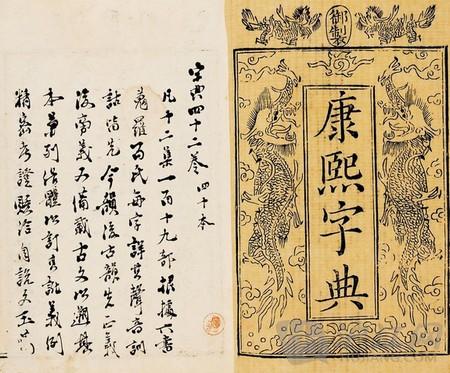 御製
康熙字典
字典四十二卷 四十本
凡十二集一百十九部根據六書
蒐羅百氏每字詳其聲音訓
詁皆先今韻後古韻先正義
後旁義又備載古文以溯其
本兼列俗體以訂其訛義例
精密考證賅洽自說文玉篇